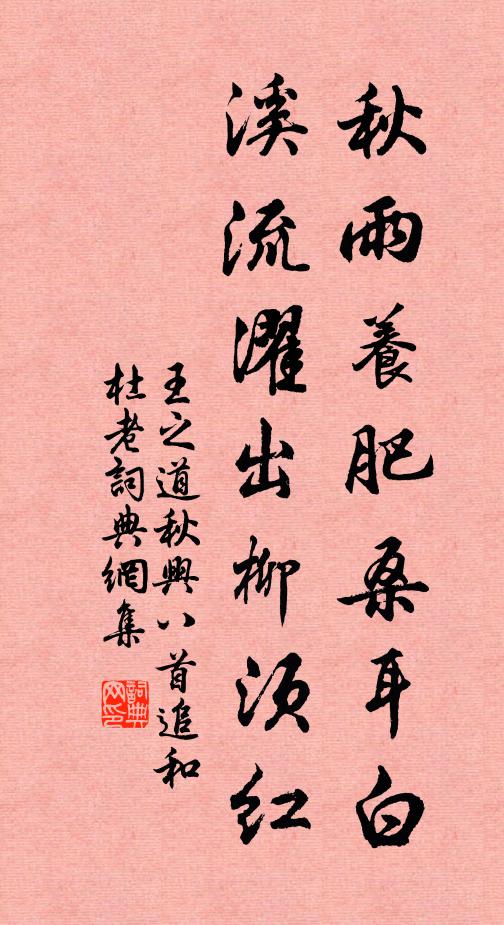 秋雨養肥桑耳白
溪流濯出柳須紅
王之道秋興八首追和
杜老詞典網集
詞典网印